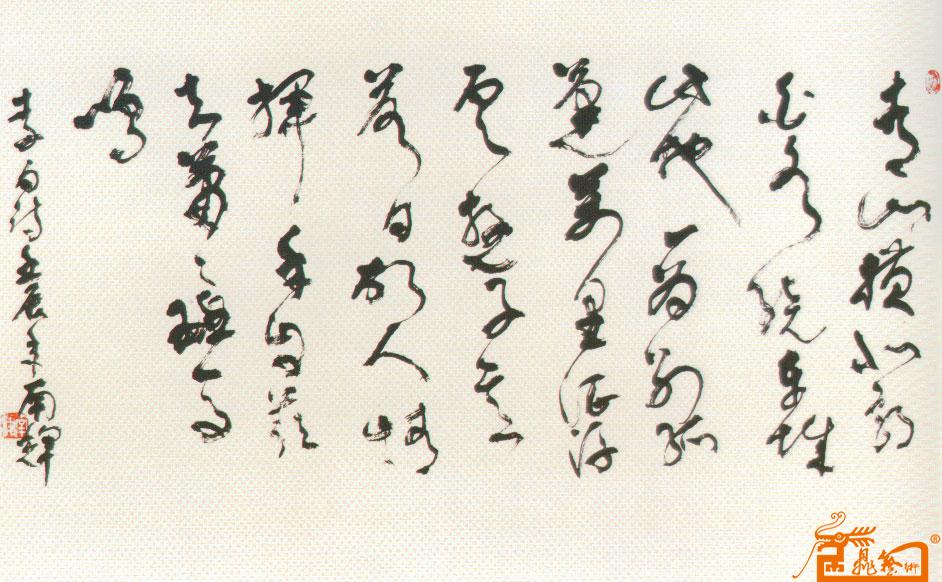 青山橫北郭
白水繞東城
此地一為別孤
蓬萬里征浮
雲遊子意
落日故人情
揮手自茲
去蕭々班馬
鳴
李白詩壬辰年南輝